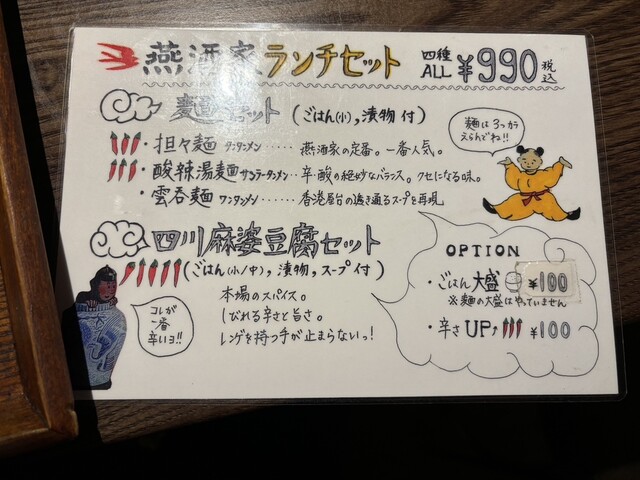 燕酒家ランチセット 四種ALL ¥990 税込
麺飯セット (ごはん(小),漬物 付)
麺は3つから
えらんでね!!
担々麺 タンタンメン…… 燕酒家の定番。一番人気。
酸辣湯麺 サンラータンメン…… 辛・酸の絶妙なバランス。クセになる味。
・雲呑麺 ワンタンメン…… 香港屋台の透き通るスープを再現
四川麻婆豆腐セット
(ごはん(小/中),漬物,スープ付)
本場のスパイス。
しびれる辛さと旨さ。
レンゲを持つ手が止まらないっ!
コレが
一番
辛いヨ!!
OPTION
・ごはん大盛 ¥100
※麺の大盛はやっていません
・辛さUP↑ ¥100